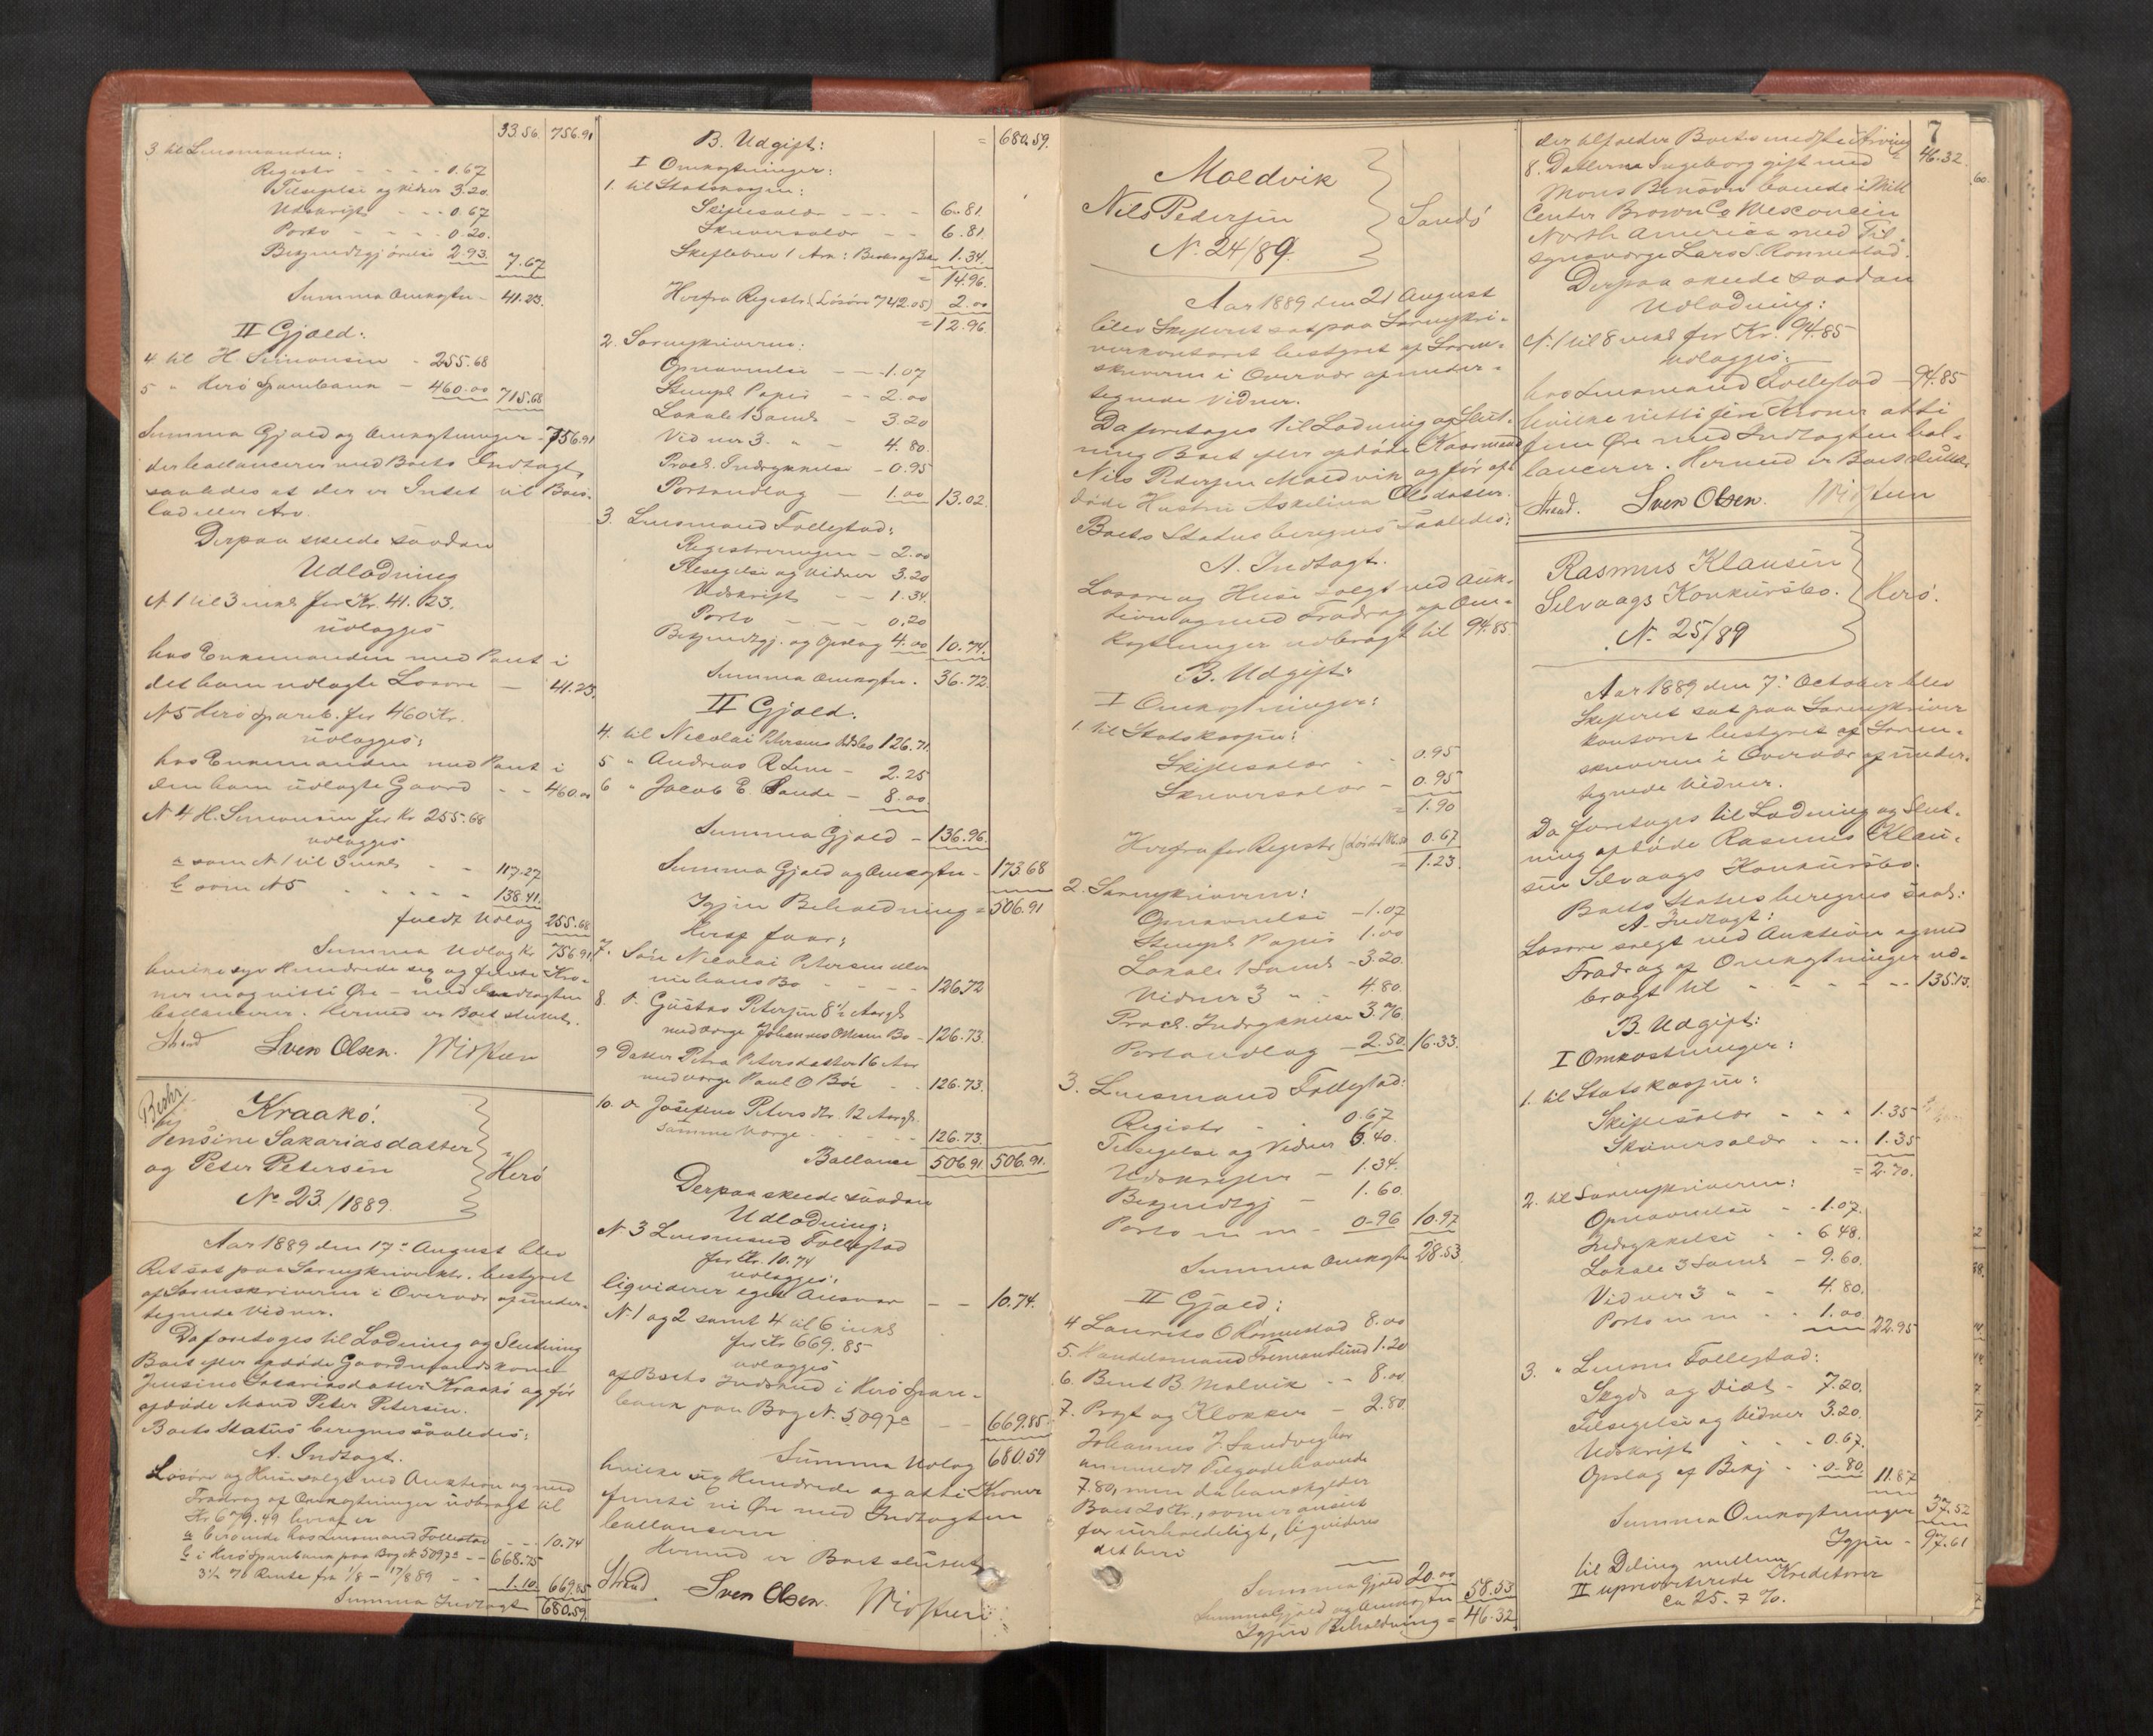 33.56. 756.91
3 til Lensmanden:
Registr - - - 0.67
Tilsigelse og Vidner 3.20.
Udskrift - - - 0.67
Porto - - - - 0.20.
Bekjendtgjørelse 2.93. 7.67
Summa Omkostn - 41.23.
II Gjæld:
4 til H. Simonsen - 255.68
5 " Herø Sparebank - 460.00 715.68
Summa Gjæld og Omkostninger - 756.91
der ballancerer med Boets Indtægt,
saaledes at der er Intet til Boes-
lod eller Arv.
Derpaa skede saadan
Udlodning
N 1 til 3 inkl for Kr. 41.23.
udlægges
hos Enkemanden med Pant i
det ham udlagte Løsøre - 41.23.
N 5 Herø Spareb. for 460 Kr.
udlægges:
hos Enkemanden med Pant i
den ham udlagte Gaard - - 460.00
N 4 H. Simonsen for Kr 255.68
udlægges
a som N 1 til 3 inkl - - 117.27
b som N 5 - - - - 138.41.
fuldt Udlæg 255.68
Summa Udlæg Kr 756.91.
hvilke syv Hundrede sex og femti Kro-
ner og nitti Øre - med Indtægten
ballancerer. Hermed er Boet sluttet.
Strand Sven Olsen.
Kraakø.
Jensine Sakariasdatter
og Peter Petersen
No 23/1889.
Herø
Aar 1889 den 17de August blev
Ret sat paa Sorenskriverktr. bestyret
af Sorenskriveren i Overvær af under-
tegnede Vidner.
Da foretoges til Lodning og Slutning
Boet efter afdøde Gaardmandskone
Jensine Sakariasdatter Kraakø og før
afdøde Mand Peter Petersen.
Boets Status beregnes saaledes:
A. Indtægt.
Løsøre og Huse solgt ved Auktion og med
Fradrag af Omkostninger udbragt til
Kr 679.49 hvoraf er
a beroende hos Lensmand Follestad - - 10.74
b i Herø Sparebank paa Bog N. 5097a - - 668.75
3½ % Rente fra 1/8 - 17/8 89 - - 1.10. 669.85
Summa Indtægt 680.59.
B. Udgift: = 680.59.
I Omkostninger:
1. til Statskassen:
Skiftesalær - - - 6.81.
Skriversalær - - 6.81.
Skiftebrev 1 Ark: 1.34.
= 14.96.
Herfra Registr (Løsøre 742.05) 2.00
= 12.96
2. Sorenskriveren:
Opnævnelse - - 1.07
Stempl Papir - - 2.00
Lokale 1 Saml - 3.20
Vidner 3. " - 4.80.
Procl. Indrykkelse - 0.95
Portoudlæg - 1.00 13.02.
3. Lensmand Follestad:
Registreringen - 2.00
Tilsigelse og Vidner 3.20
Udskrift - - 1.34.
Porto - - - 0.20
Bekjendtgj. og Opslag 4.00 10.74.
Summa Omkostn. 36.72.
II Gjæld:
4. til Nicolai Petersens Dødsbo 126.71.
5 " Andreas R Leine - 2.25
6 " Jacob E. Sande - 8.00.
Summa Gjæld - 136.96.
Summa Gjæld og Omkostn - 173.68
Igjen Beholdning = 506.91
Heraf faar:
7. Søn Nicolai Petersen eller
nu hans Bo - - - 126.72
8. do Gustav Petersen 8½ Aargl
med Værge Johannes Olsen Bø - 126.73.
9 Datter Petra Petersdatter 16 Aar
med Værge Paul O Bøe - - 126.73.
10. do Josefine Petersdtr. 12 Aargl.
samme Værge - - - 126.73.
Ballance 506.91 506.91.
Derpaa skede saadan
Udlodning:
N 3 Lensmand Follestad
for Kr. 10.74
udlægges:
liqviderer eget Ansvar - - 10.74.
N 1 og 2 samt 4 til 6 inkl
for Kr 669.85
udlægges
af Boets Indskud i Herø Spare-
bank paa Bog N. 5097a - - 669.85.
Summa Udlæg 680.59
hvilke sex Hundrede og otti Kroner
femti ni Øre med Indtægten
ballancerer
Hermed er Boet sluttet
Strand Sven Olsen.
Moldvik
Nils Pedersen
N. 24/89.
Sandø
Aar 1889 den 21 August
blev Skifteret sat paa Sorenskri-
verkontoret bestyret af Soren-
skriveren i Overvær af under-
tegnede Vidner.
Da foretoges til Lodning og Slut-
ning Boet efter afdøde Kaarmand
Nils Pedersen Moldvik og før af-
døde Hustru Askelina Olsdatter.
Boets Status beregnes saaledes:
A. Indtægt.
Løsøre og Huse solgt ved Auk-
tion og med Fradrag af Om-
kostninger udbragt til 94.85.
B. Udgift:
I Omkostninger:
1. til Statskassen:
Skiftesalær - - 0.95
Skriversalær - 0.95
= 1.90
Herfra for Registr 0.67
= 1.23.
2. Sorenskriveren:
Opnævnelse - 1.07
Stempl Papir 1.00
Lokale 1 Saml - 3.20.
Vidner 3 " - 4.80.
Procl. Indrykkelse 3.76.
Portoudlæg - 2.50. 16.33.
3. Lensmand Follestad:
Registr - - 0.67
Tilsigelse og Vidner 6.40.
Udskrifter - 1.34.
Bekjendtgj - 1.60.
Porto m m - 0.96 10.97
Summa Omkostn 28.53.
II Gjæld:
4 Laurits O Rønnestad 8.00
5. Handelsmand 1.20
6. Bent B. Molvik - - 8.00.
7. Præst og Klokker - 2.80.
Johannes J. Sandvig har
anmeldt Tilgodehavende
7.80, men da han skylder
Boet 20 Kr., som er anseet
for uerholdeligt, liqvideres
det heri
Summa Gjæld 20.00
Summa Gjæld og Omkostn 58.53
Igjen Beholdning = 46.32.
7
der tilfalder Boets Arving = 46.32.
8. Datteren Ingeborg gift med
Mons boende i Mill
Center Brown Co Wesconsin
North America med Til-
synsværge Lars S. Rønnestad.
Derpaa skede saadan
Udlodning:
N. 1 til 8 inkl for Kr. 94.85
udlægges:
hos Lensmand Follestad - 94.85
hvilke nitti fire Kroner otti
fem Øre med Indtægten bal-
lancerer. Hermed er Boet sluttet.
Strand. Sven Olsen.
Rasmus Klausen
Selvaags Konkursbo.
N. 25/89
Herø.
Aar 1889 den 7de October blev
Skifteret sat paa Sorenskriver
kontoret bestyret af Soren-
skriveren i Overvær af under-
tegnede Vidner.
Da foretoges til Lodning og Slut-
ning afdøde Rasmus Klau-
sen Selvaags Konkursbo.
Boets Status beregnes saal:
A. Indtægt:
Løsøre solgt ved Auktion og med
Fradrag af Omkostninger ud-
bragt til - - - - - 135.13.
B. Udgift:
I Omkostninger:
1. til Statskassen:
Skiftesalær - - - 1.35
Skriversalær - - - 1.35
= 2.70.
2. til Sorenskriveren:
Opnævnelse - - 1.07.
Indrykkelse - - 6.48.
Lokale 3 Saml - 9.60.
Vidner 3 " - 4.80.
Porto m m - - 1.00 22.95
3. " Lensm Follestad:
Skyds og Diæt - 7.20.
Tilsigelse og Vidner 3.20.
Udskrift - - - 0.67.
Opslag af Bekj - - 0.80. 11.87
Summa Omkostninger 37.52
Igjen - 97.61
til Deling mellem
II uprioriterede Kreditorer
ca 25.7 %.